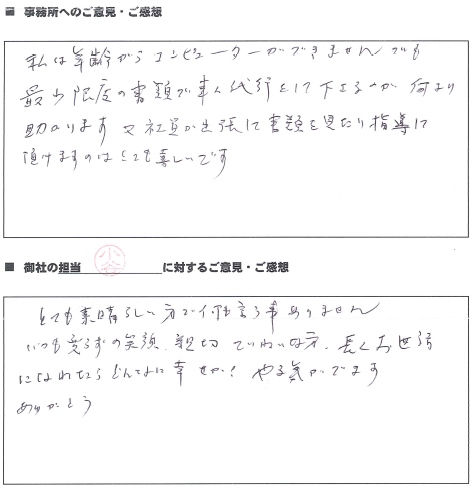 ■ 事務所へのご意見・ご感想
私は年齢がらコンピューターができません でも
最少限度の書類で事ム代行をして下さるのが 何より
助かります 又社員が出張して書類を見たり指導して
頂けますのはとても喜しいです
■ 御社の担当 に対するご意見・ご感想
とても素晴らしい方で何も言う事ありません
いつも変らずの笑顔、親切 ていねいな方、長くお世話
になれたらどんなに幸せか! やる気がでます
ありがとう